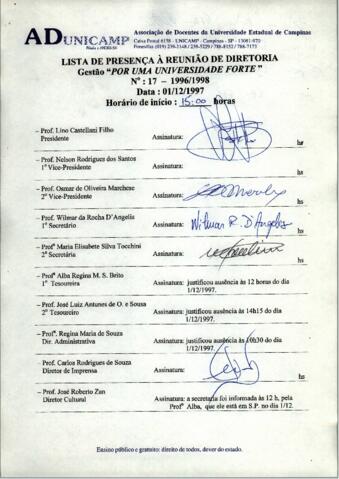 ADUNICAMP
Associação de Docentes da Universidade Estadual de Campinas
Caixa Postal 6158 - UNICAMP - Campinas - SP - 13081-970
LISTA DE PRESENÇA À REUNIÃO DE DIRETORIA
Gestão "POR UMA UNIVERSIDADE FORTE"
Nº : 17 - 1996/1998
Data : 01/12/1997
Horário de início : 15:00 horas
– Prof. Lino Castellani Filho Assinatura:
Presidente hr
– Prof. Nelson Rodrigues dos Santos Assinatura:
1º Vice-Presidente hs
– Prof. Osmar de Oliveira Marchese Assinatura:
2º Vice-Presidente hs
– Prof. Wilmar da Rocha D'Angelis Assinatura: Wilmar R. D'Angelis
1º Secretário hs
– Profª Maria Elisabete Silva Tocchini Assinatura:
2ª Secretária hs
– Profª Alba Regina M. S. Brito Assinatura: justificou ausência às 12 horas do dia
1ª Tesoureira 1/12/1997.
– Prof. José Luiz Antunes de O. e Sousa Assinatura: justificou ausência às 14h15 do dia
2º Tesoureiro 1/12/1997.
– Profª. Regina Maria de Souza Assinatura: justificou ausência às 10h30 do dia
Dir. Administrativa 1/12/1997.
Prof. Carlos Rodrigues de Souza Assinatura:
Diretor de Imprensa hs
– Prof. José Roberto Zan Assinatura: a secretaria foi informada às 12 h, pela
Diretor Cultural Profª Alba, que ele está em S.P. no dia 1/12.
Ensino público e gratuito: direito de todos, dever do estado.